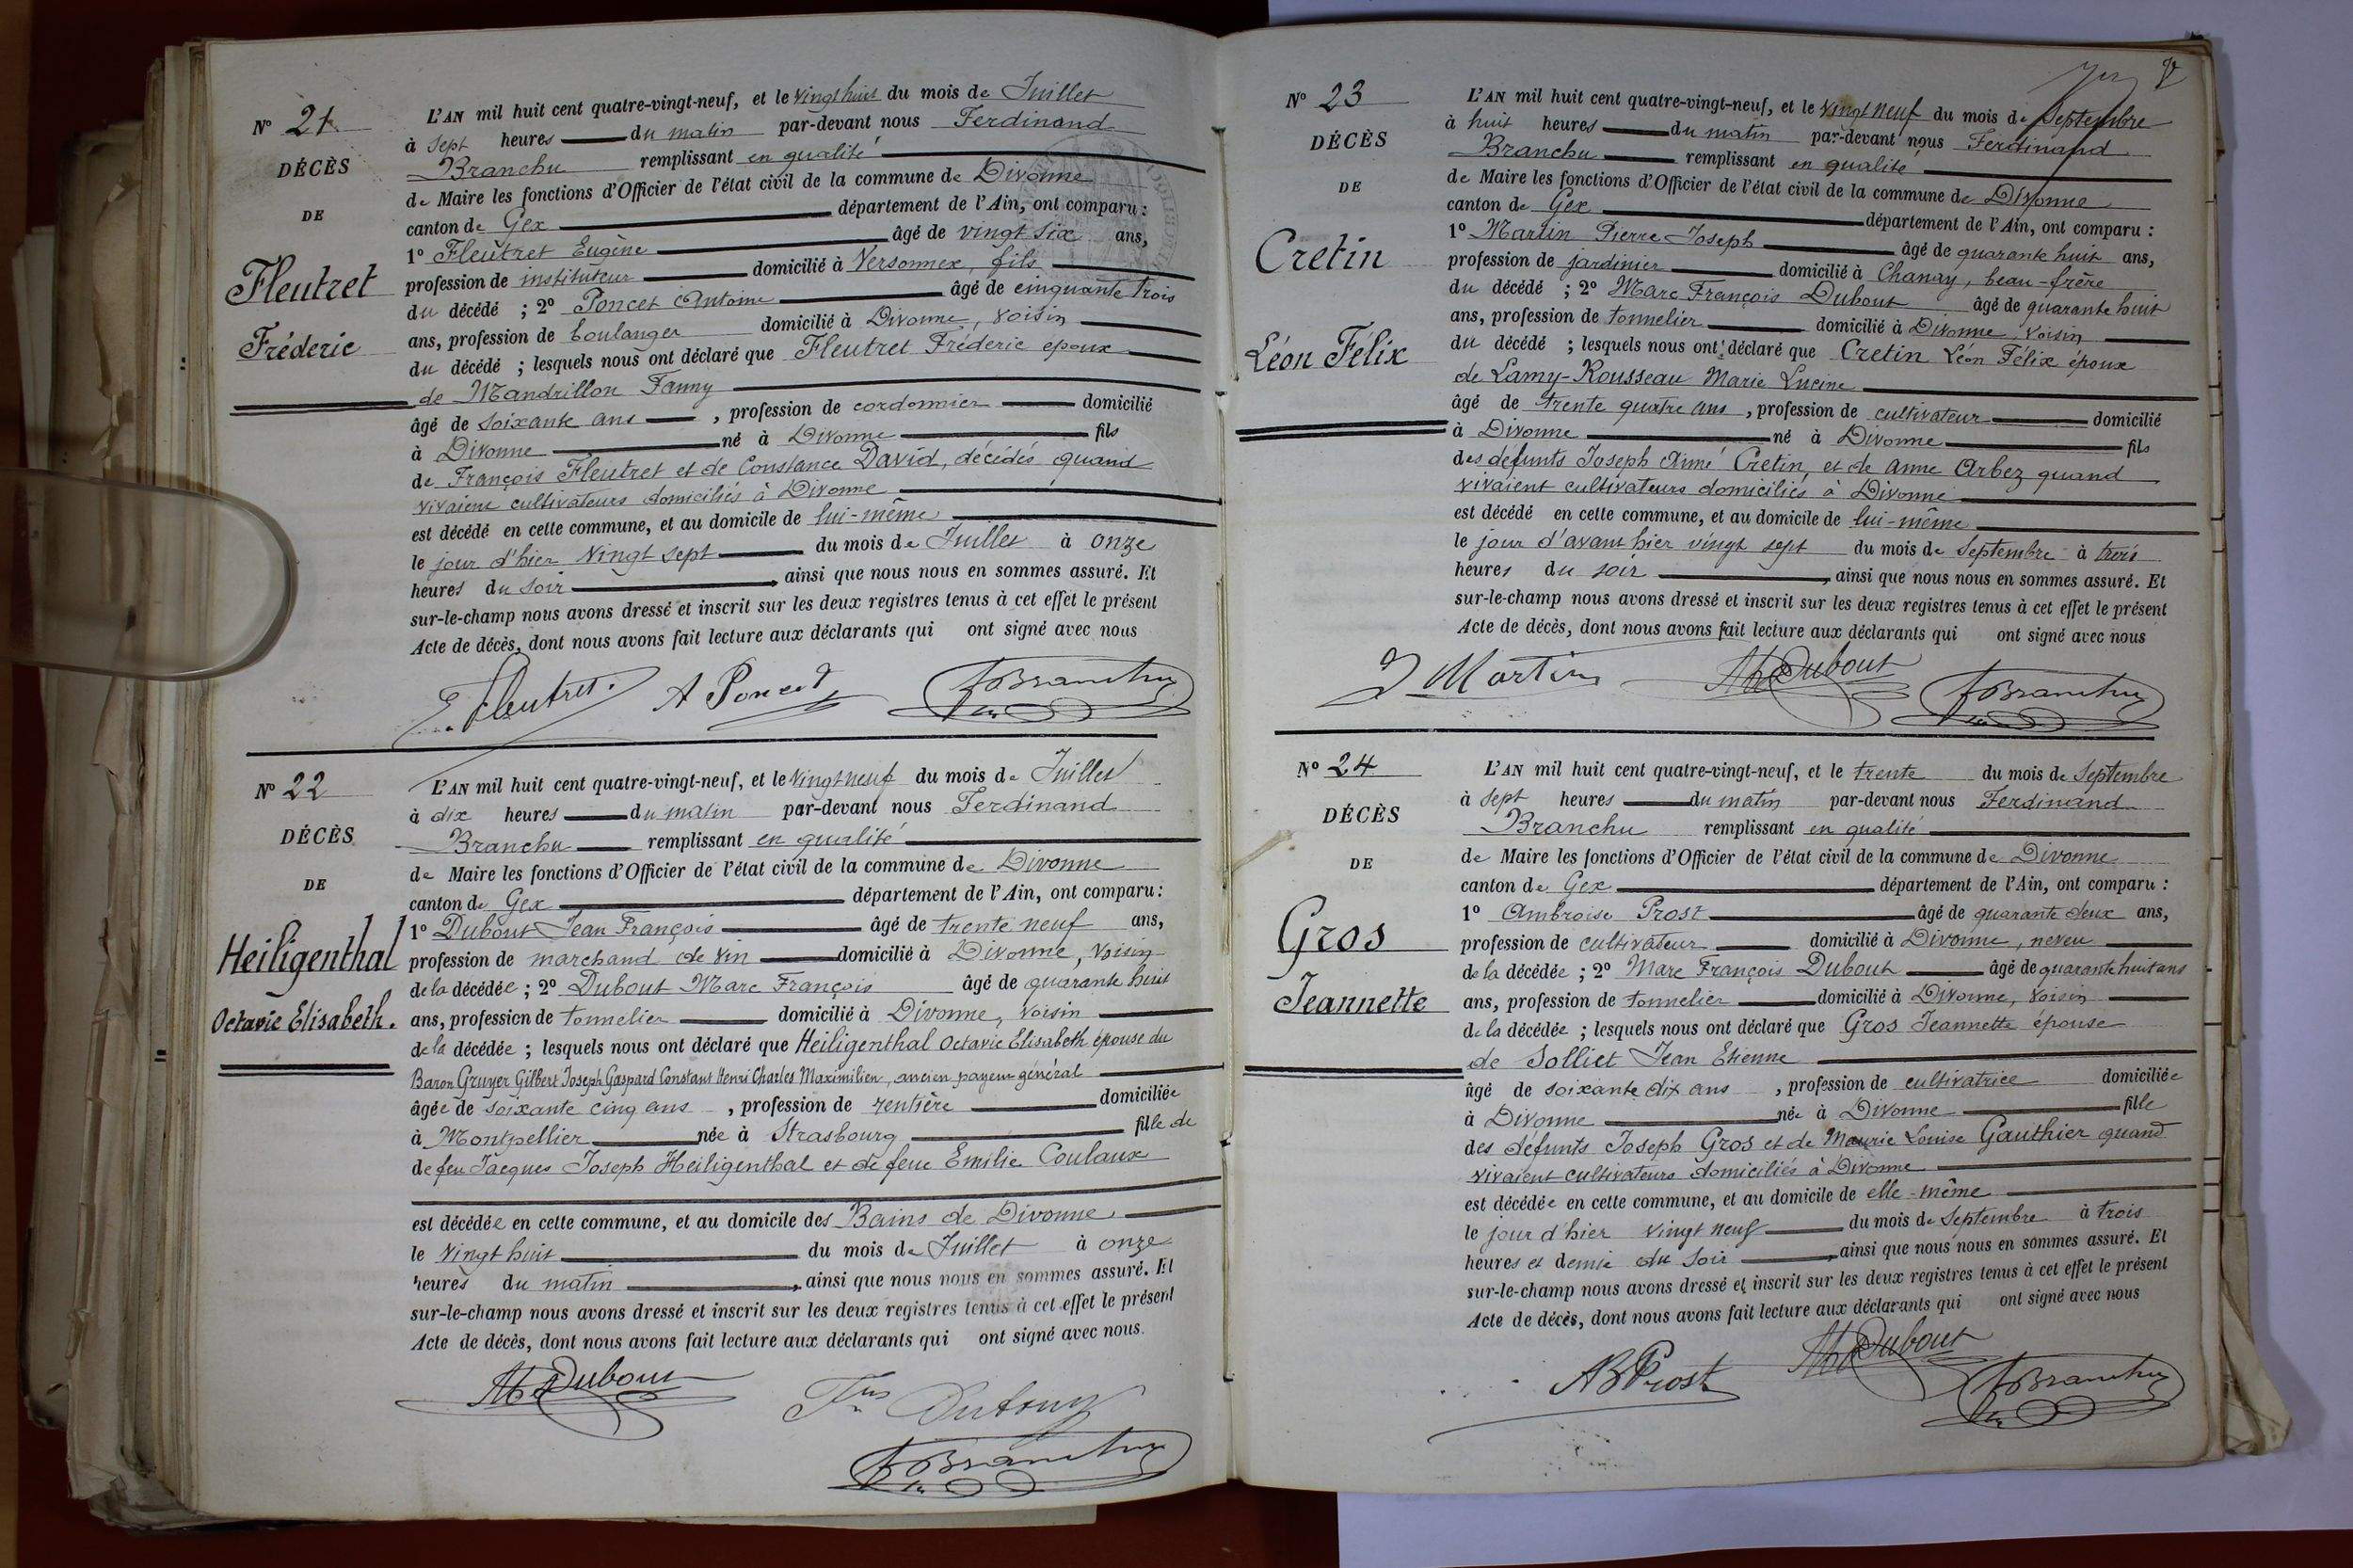 N° 21
DÉCÈS
DE
Fleutret
Fréderic
L'AN mil huit cent quatre-vingt-neuf, et le vingt huit du mois de Juillet
à sept heures du matin par-devant nous Ferdinand
Branchu remplissant en qualité
de Maire les fonctions d'Officier de l'état civil de la commune de Divonne
canton de Gex département de l'Ain, ont comparu :
1° Fleutret Eugène âgé de vingt six ans,
profession de instituteur domicilié à Versonnex, fils
du décédé ; 2° Poncet Antoine âgé de cinquante trois
ans, profession de boulanger domicilié à Divonne, voisin
du décédé ; lesquels nous ont déclaré que Fleutret Fréderic époux
de Mandrillon Fanny
âgé de soixante ans , profession de cordonnier domicilié
à Divonne né à Divonne fils
de François Fleutret et de Constance David, décédés quand
vivaient cultivateurs domiciliés à Divonne
est décédé en cette commune, et au domicile de lui-même
le jour d'hier vingt sept du mois de Juillet à onze
heures du soir , ainsi que nous nous en sommes assuré. Et
sur-le-champ nous avons dressé et inscrit sur les deux registres tenus à cet effet le présent
Acte de décès, dont nous avons fait lecture aux déclarants qui ont signé avec nous
E. Fleutret. A Poncet F Branchu
N° 22
DÉCÈS
DE
Heiligenthal
Octavie Elisabeth.
L'AN mil huit cent quatre-vingt-neuf, et le vingt neuf du mois de Juillet
à dix heures du matin par-devant nous Ferdinand
Branchu remplissant en qualité
de Maire les fonctions d'Officier de l'état civil de la commune de Divonne
canton de Gex département de l'Ain, ont comparu :
1° Dubout Jean François âgé de trente neuf ans,
profession de marchand de vin domicilié à Divonne, voisin
de la décédée ; 2° Dubout Marc François âgé de quarante huit
ans, profession de tonnelier domicilié à Divonne, voisin
de la décédée ; lesquels nous ont déclaré que Heiligenthal Octavie Elisabeth épouse du
Baron Gruyer Gilbert Joseph Gaspard Constant Henri Charles Maximilien, ancien payeur général
âgée de soixante cinq ans , profession de rentière domiciliée
à Montpellier née à Strasbourg fille de
de feu Jacques Joseph Heiligenthal et de feue Emilie Coulaux
est décédée en cette commune, et au domicile des Bains de Divonne
le vingt huit du mois de Juillet à onze
heures du matin , ainsi que nous nous en sommes assuré. Et
sur-le-champ nous avons dressé et inscrit sur les deux registres tenus à cet effet le présent
Acte de décès, dont nous avons fait lecture aux déclarants qui ont signé avec nous.
Dubout Fçois Dubout
F Branchu
N° 23
DÉCÈS
DE
Cretin
Léon Félix
L'AN mil huit cent quatre-vingt-neuf, et le vingt neuf du mois de Septembre
à huit heures du matin par-devant nous Ferdinand
Branchu remplissant en qualité
de Maire les fonctions d'Officier de l'état civil de la commune de Divonne
canton de Gex département de l'Ain, ont comparu :
1° Martin Pierre Joseph âgé de quarante huit ans,
profession de jardinier domicilié à Chanay, beau-frère
du décédé ; 2° Marc François Dubout âgé de quarante huit
ans, profession de tonnelier domicilié à Divonne, voisin
du décédé ; lesquels nous ont déclaré que Cretin Léon Félix époux
de Lamy-Rousseau Marie Lucine
âgé de trente quatre ans , profession de cultivateur domicilié
à Divonne né à Divonne fils
des défunts Joseph Aimé Cretin, et de Anne Arbez quand
vivaient cultivateurs domiciliés à Divonne
est décédé en cette commune, et au domicile de lui-même
le jour d'avant hier vingt sept du mois de Septembre à trois
heures du soir , ainsi que nous nous en sommes assuré. Et
sur-le-champ nous avons dressé et inscrit sur les deux registres tenus à cet effet le présent
Acte de décès, dont nous avons fait lecture aux déclarants qui ont signé avec nous
J Martin Dubout F Branchu
N° 24
DÉCÈS
DE
Gros
Jeannette
L'AN mil huit cent quatre-vingt-neuf, et le trente du mois de Septembre
à sept heures du matin par-devant nous Ferdinand
Branchu remplissant en qualité
de Maire les fonctions d'Officier de l'état civil de la commune de Divonne
canton de Gex département de l'Ain, ont comparu :
1° Ambroise Prost âgé de quarante deux ans,
profession de cultivateur domicilié à Divonne, neveu
de la décédée ; 2° Marc François Dubout âgé de quarante huit ans
ans, profession de tonnelier domicilié à Divonne, voisin
de la décédée ; lesquels nous ont déclaré que Gros Jeannette épouse
de Solliet Jean Etienne
âgé de soixante dix ans , profession de cultivatrice domiciliée
à Divonne née à Divonne fille
des défunts Joseph Gros et de Maurie Louise Gauthier quand
vivaient cultivateurs domiciliés à Divonne
est décédée en cette commune, et au domicile de elle-même
le jour d'hier vingt neuf du mois de Septembre à trois
heures et demie du soir , ainsi que nous nous en sommes assuré. Et
sur-le-champ nous avons dressé et inscrit sur les deux registres tenus à cet effet le présent
Acte de décès, dont nous avons fait lecture aux déclarants qui ont signé avec nous
AB Prost Dubout
F Branchu